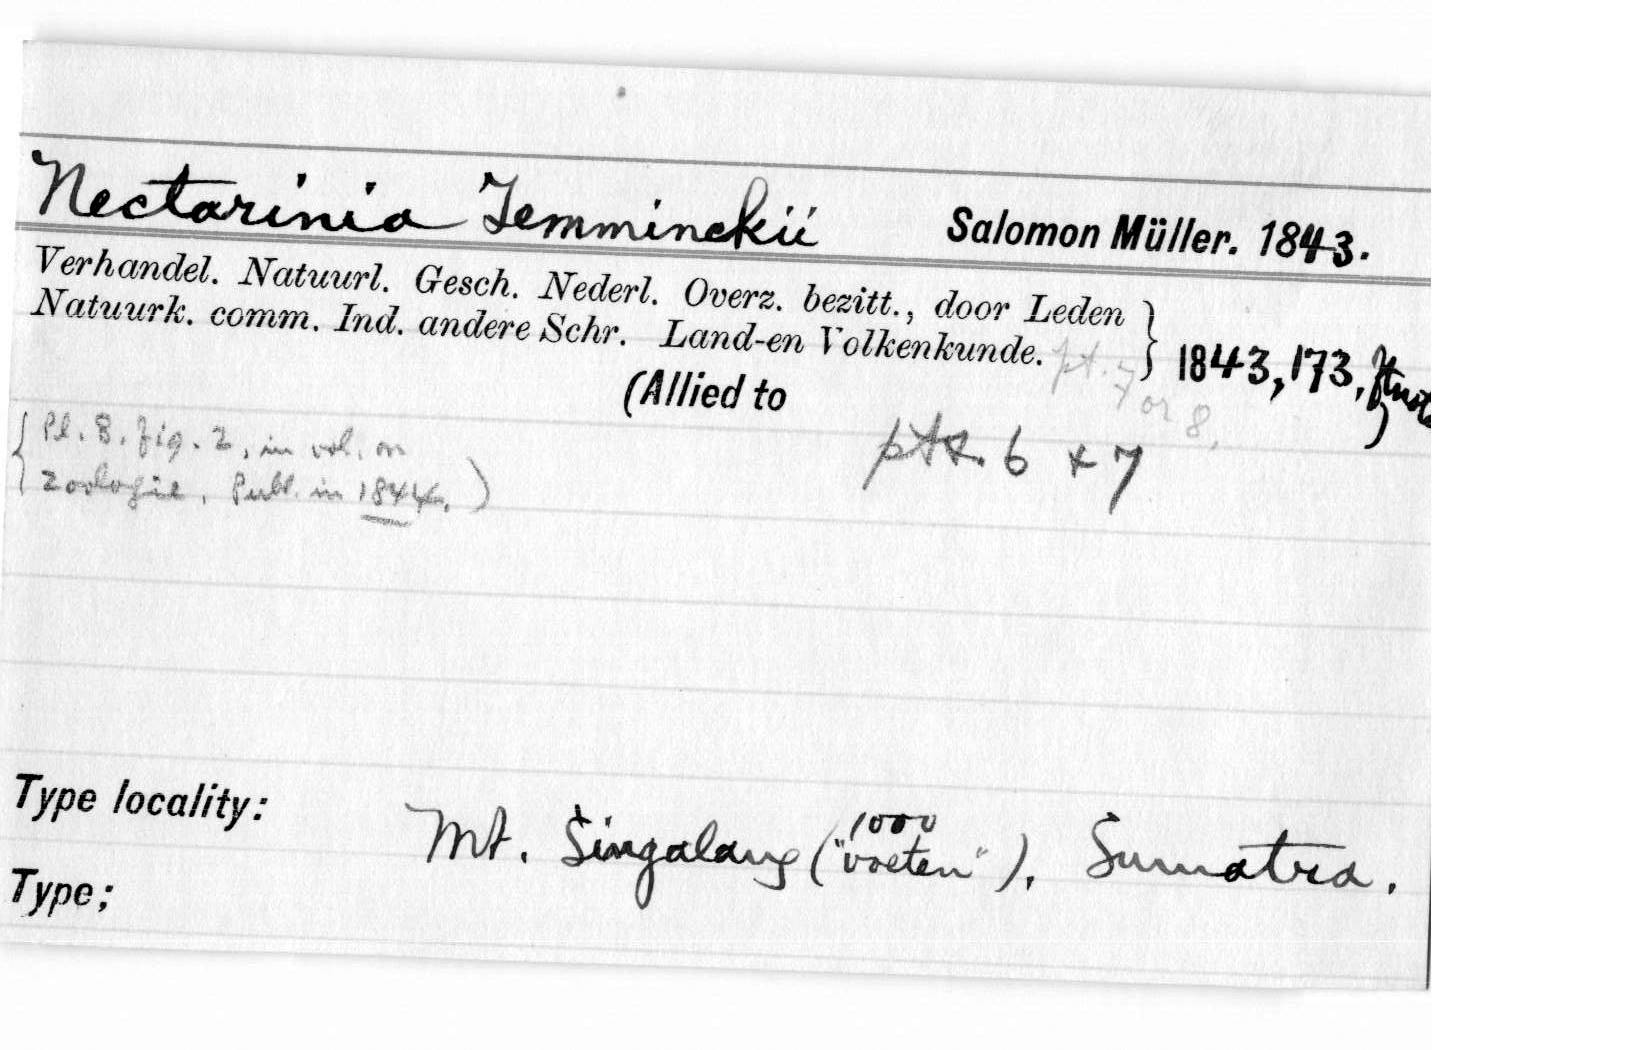 Nectarinia Temminckii Salomon Müller. 1843.
Verhandel. Natuurl. Gesch. Nederl. Overz. bezitt., door Leden
Natuurk. comm. Ind. andere Schr. Land-en Volkenkunde. pt. 7 } 1843, 173, ftnote
or 8.
(Allied to )
pts. 6 + 7
{ Pl. 8. fig. 2, in vol. on
zoologie, Publ. in 1844. )
Type locality: Mt. Singalang (1000 "voeten"), Sumatra.
Type;